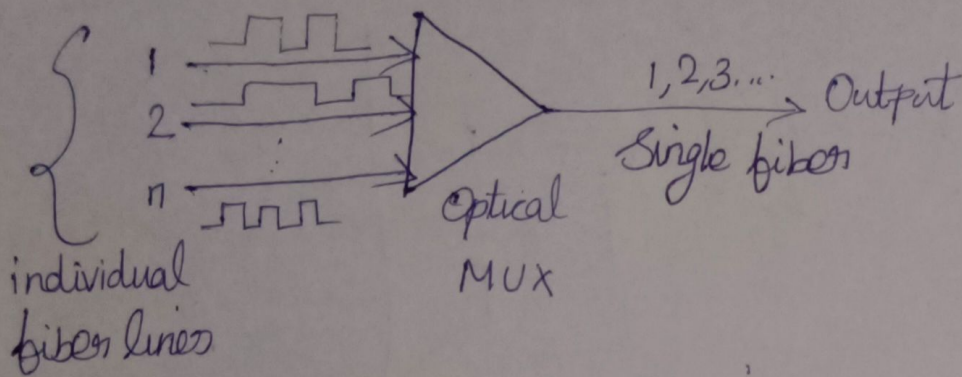 1
2
n
individual
fiber lines
Optical
MUX
1,2,3....
Single fiber
Output